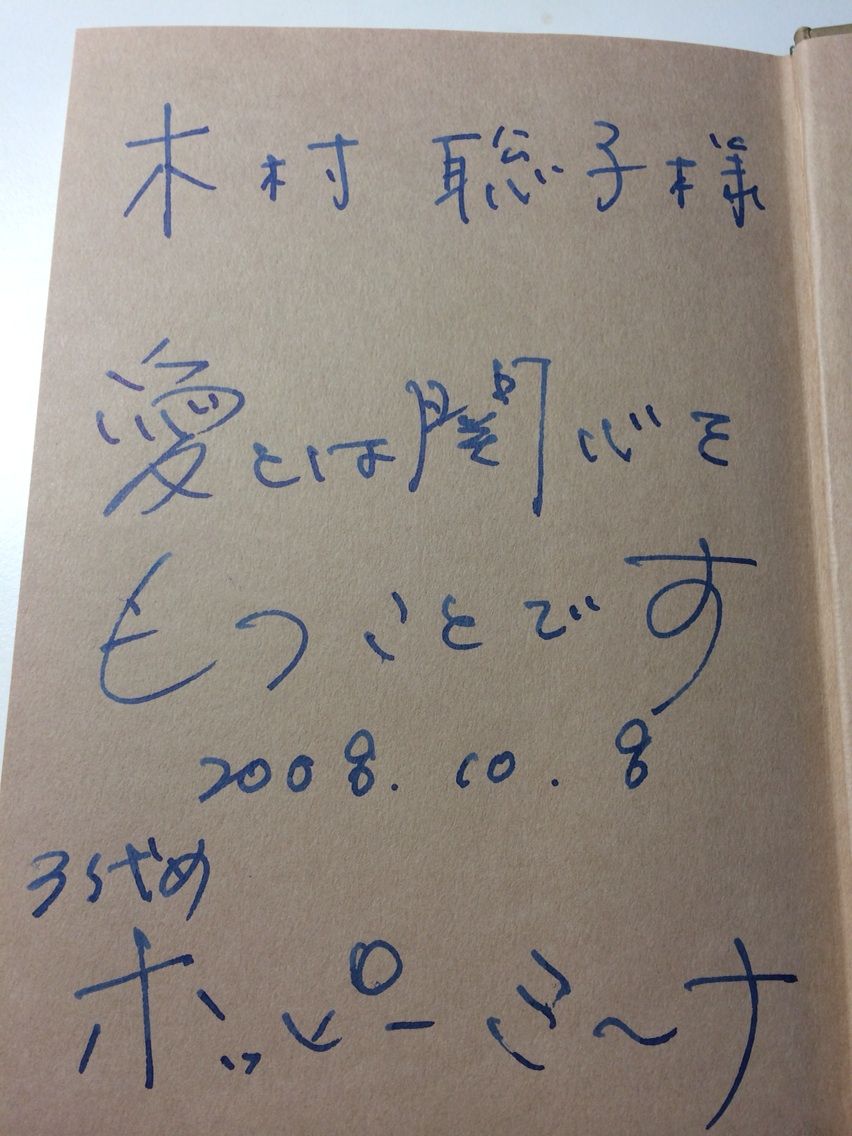 木村 聡子様
愛とは関心を
もつことです
2008.10.8
3代め
ホッピーミ〜ナ